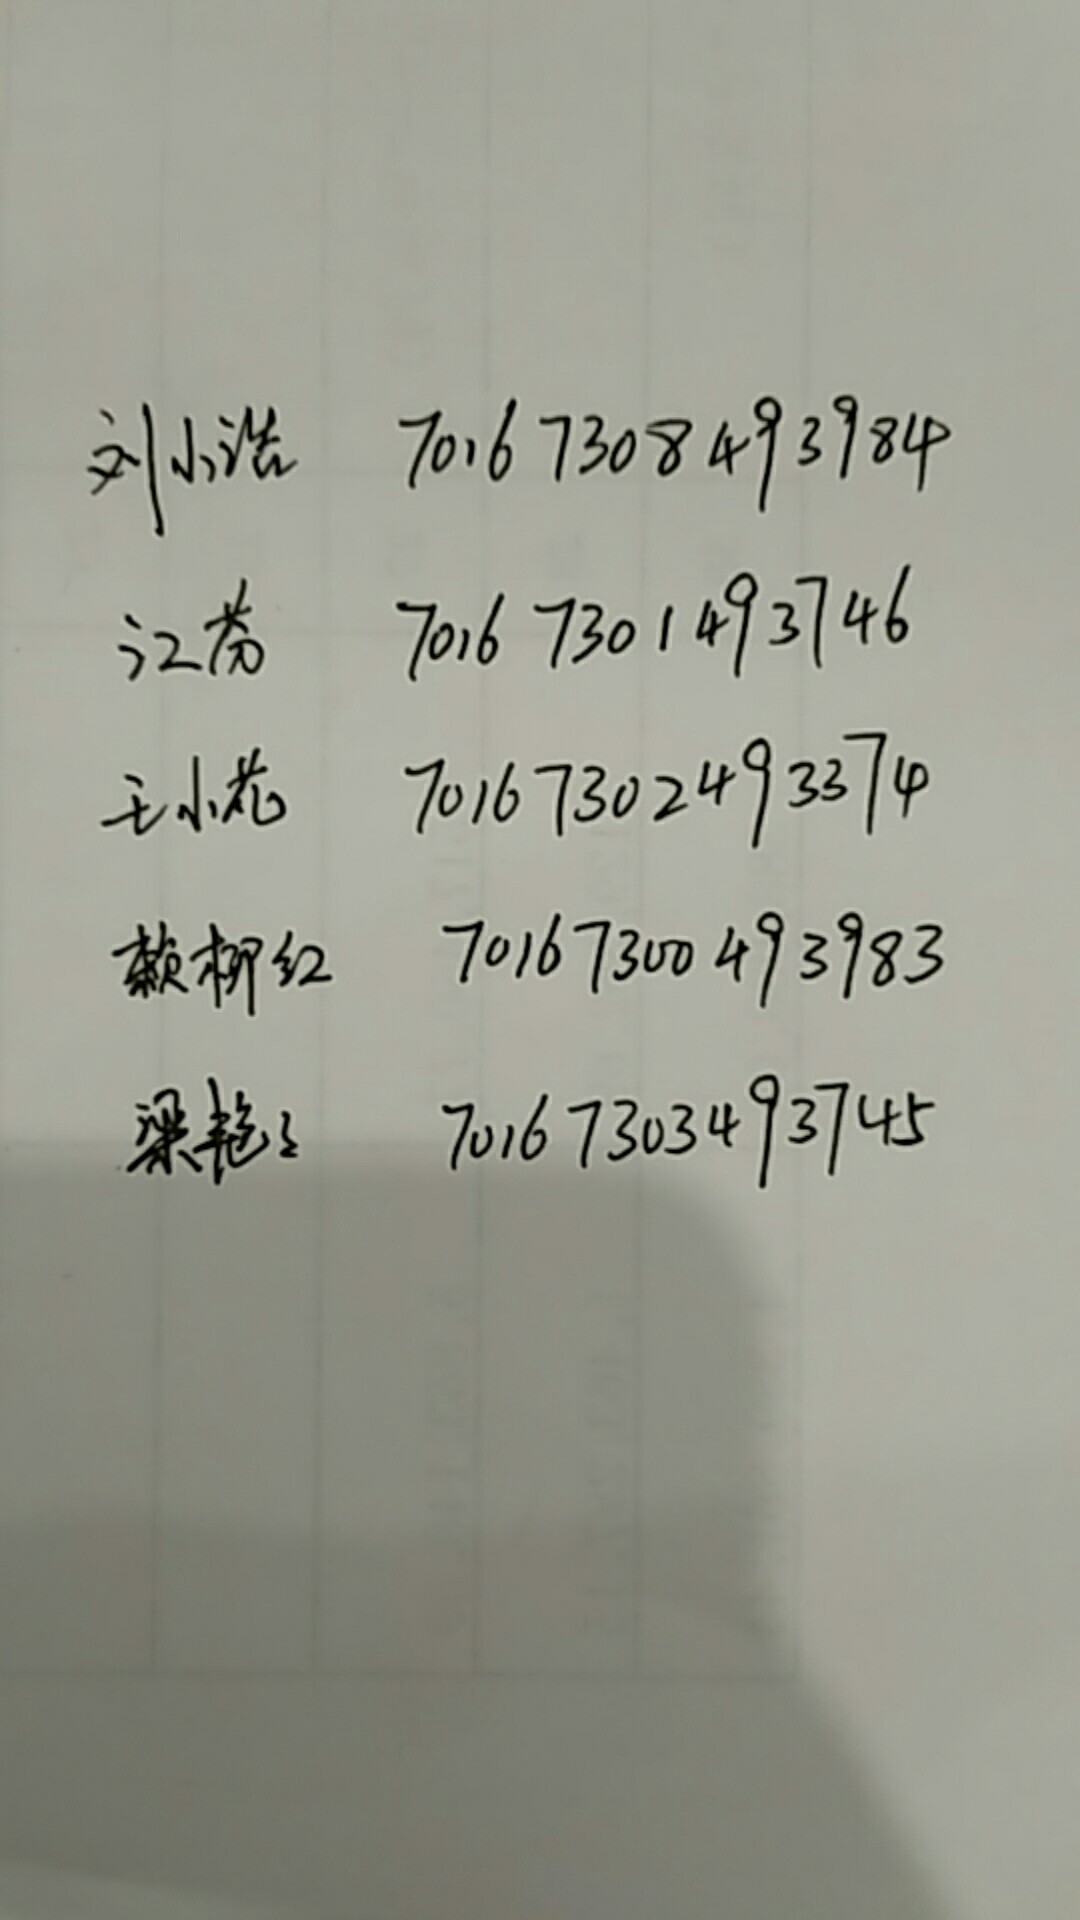 刘小浩 7016 7308 493984
江芬 7016 7301 493746
王小花 7016 7302 493374
赖柳红 7016 7300 493983
梁艳 7016 7303 493745